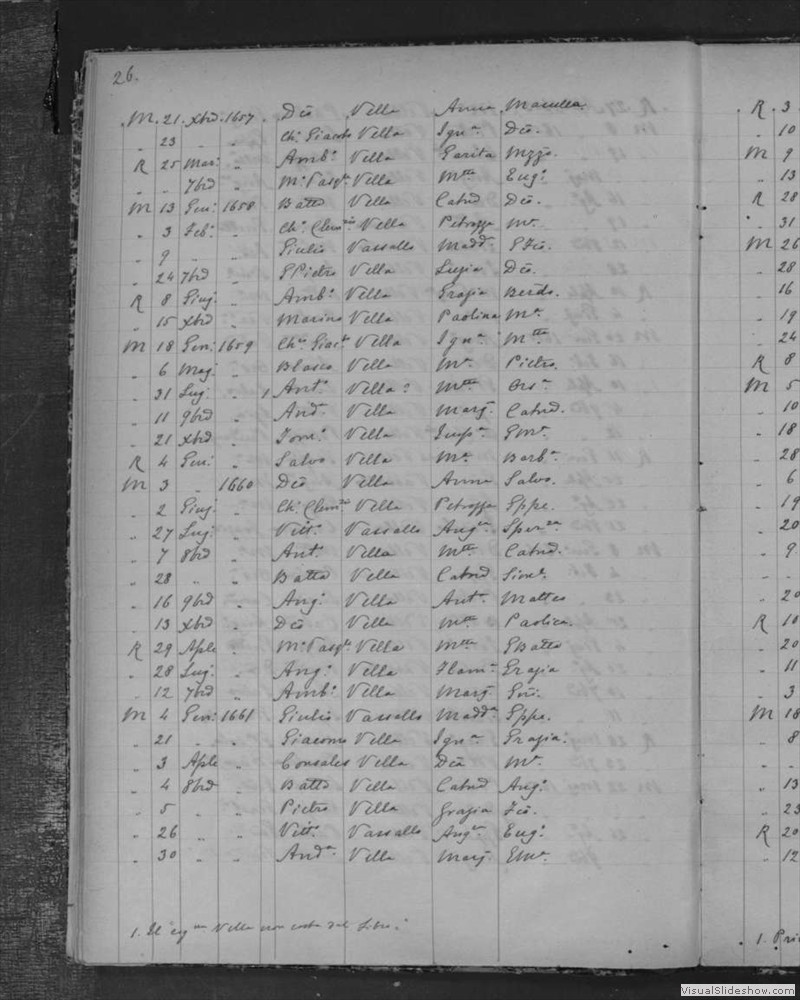 26.
M. 21. Xbrd. 1657. Dco Vella Anna Maculla.
„ 23 „ „ Chᵒ Giacobo Vella Ignᵃ Dco.
R 25 Mar: „ Ambᵒ Vella Garita
„ „ 7brd „ Mᵒ Pasqle Vella Mtta Eugᵃ.
M 13 Gen: 1658 Batta Vella Catnd Dco.
„ 3 Feb: „ Chᵒ Vella Mᵃ.
„ 9 „ „ Giulio Vassallo Maddᵃ
„ 24 7brd „ GPietro Vella Dco.
R 8 Giug „ Ambᵒ Vella Grazia Berdo.
„ 15 Xbrd „ Marino Vella Paolina Mᵃ.
M 18 Gen: 1659 Chᵒ Giacᵒ Vella Ignᵃ Mtta.
„ 6 Mag: „ Blasco Vella Mᵃ Pietro.
„ 31 Lug: „ 1 Antᵒ Vella: Mtta Orsᵃ.
„ 11 9brd „ Andᵃ Vella Marg: Catnd.
„ 21 Xbrd „ Vella Impᵃ
R 4 Gen: „ Salvo Vella Mᵃ Barbᵃ.
M 3 „ 1660 Dco Vella Anna Salvo.
„ 2 Giug: „ Chᵒ Vella Gppe.
„ 27 Lug: „ Vittᵒ Vassallo Angᵃ
„ 7 8brd „ Antᵒ Vella Mtta Catnd.
„ 28 „ „ Batta Vella Catnd
„ 16 9brd „ Angᵒ Vella Antᵃ Matteo
„ 13 Xbrd „ Dco Vella Mtta Paolica.
R 29 Aple „ Mᵒ Pasqle Vella Mtta GBatta
„ 28 Lug: „ Angᵒ Vella Flamᵃ Grazia
„ 12 7brd „ Ambᵒ Vella Marg Gio:
M 4 Gen: 1661 Giulio Vassallo Maddᵃ Gppe.
„ 21 „ „ Giacomo Vella Ignᵃ Grazia.
„ 3 Aple „ Consalvo Vella Dca Mᵃ.
„ 4 8brd „ Batta Vella Catnd Angᵒ.
„ 5 „ „ Pietro Vella Grazia Fco.
„ 26 „ „ Vittᵒ Vassallo Angᵃ Eugᵒ.
„ 30 „ „ Andᵃ Vella Marg
1. Il cogᵐᵉ Vella non costa dal Libro.
R 3
„ 10
M 9
„ 13
R 28
„ 31
M 26
„ 28
„ 16
„ 19
„ 24
R 8
M 5
„ 10
„ 18
„ 28
„ 6
„ 19
„ 20
„ 9
„ „
„ 20
R 10
„ 20
„ 11
„ 3
M 18
„ 8
„ „
„ 13
„ 23
R 20
„ 12
1. Pri
VisualSlideshow.com